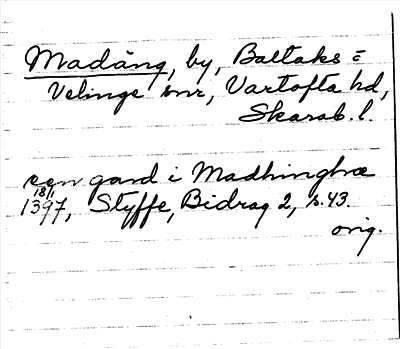 Madäng, by, Baltaks=
Velinge snr, Vartofta hd,
Skarab. l.
een gard i Madhinghæ
18/1
1397, Styffe, Bidrag 2, s. 43.
orig.